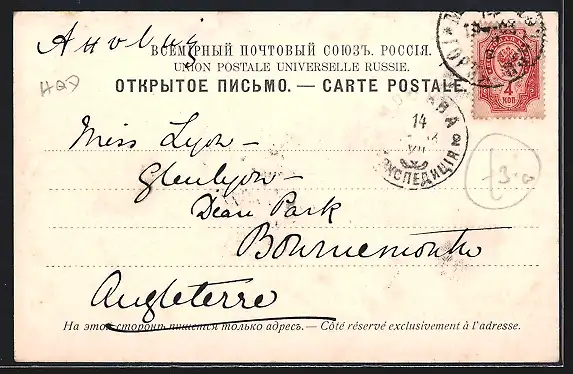 Англия
ВСЕМІРНЫЙ ПОЧТОВЫЙ СОЮЗЪ. РОССІЯ.
UNION POSTALE UNIVERSELLE RUSSIE.
ОТКРЫТОЕ ПИСЬМО. — CARTE POSTALE.
4
КОП
МОСКВА
14
ЭКСПЕДИЦІЯ
Miss Lyon —
Glenlyon —
Dean Park
Bournemouth
Angleterre
На этой сторонѣ пишется только адресъ. — Côté réservé exclusivement à l'adresse.